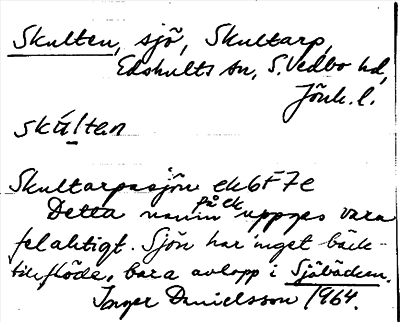 Skulten, sjö, Skultarp,
Edshults sn, S. Vedbo hd,
Jönk. l.
skúltan
Skultarpasjön ek 6F7e
på ek
Detta namn uppges vara
felaktigt. Sjön har inget bäck-
tillflöde, bara avlopp i Sjöbäcken.
Inger Danielsson 1964.